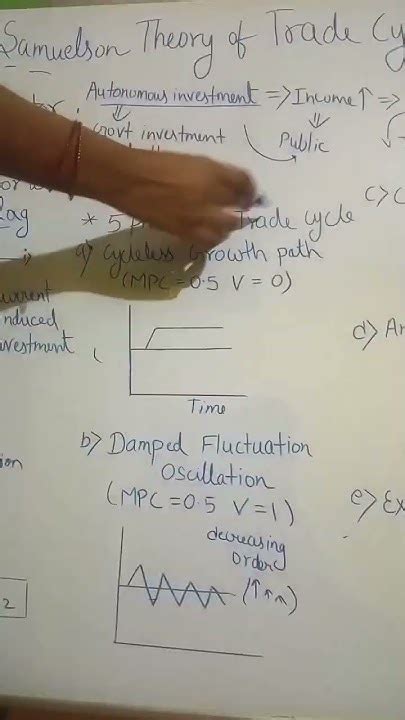 Samuelson Theory of Trade Cy
Autonomous investment => Income ↑ =>
Govt investment
Public
Lag
* 5
Trade cycle
c> C
a) Cycleless Growth path
(MPC = 0.5 V = 0)
current
induced
investment
d> An
Time
b> Damped Fluctuation
Oscullation
(MPC = 0.5 V = 1)
e> Ex
decreasing
order
(↑↑↑)
2